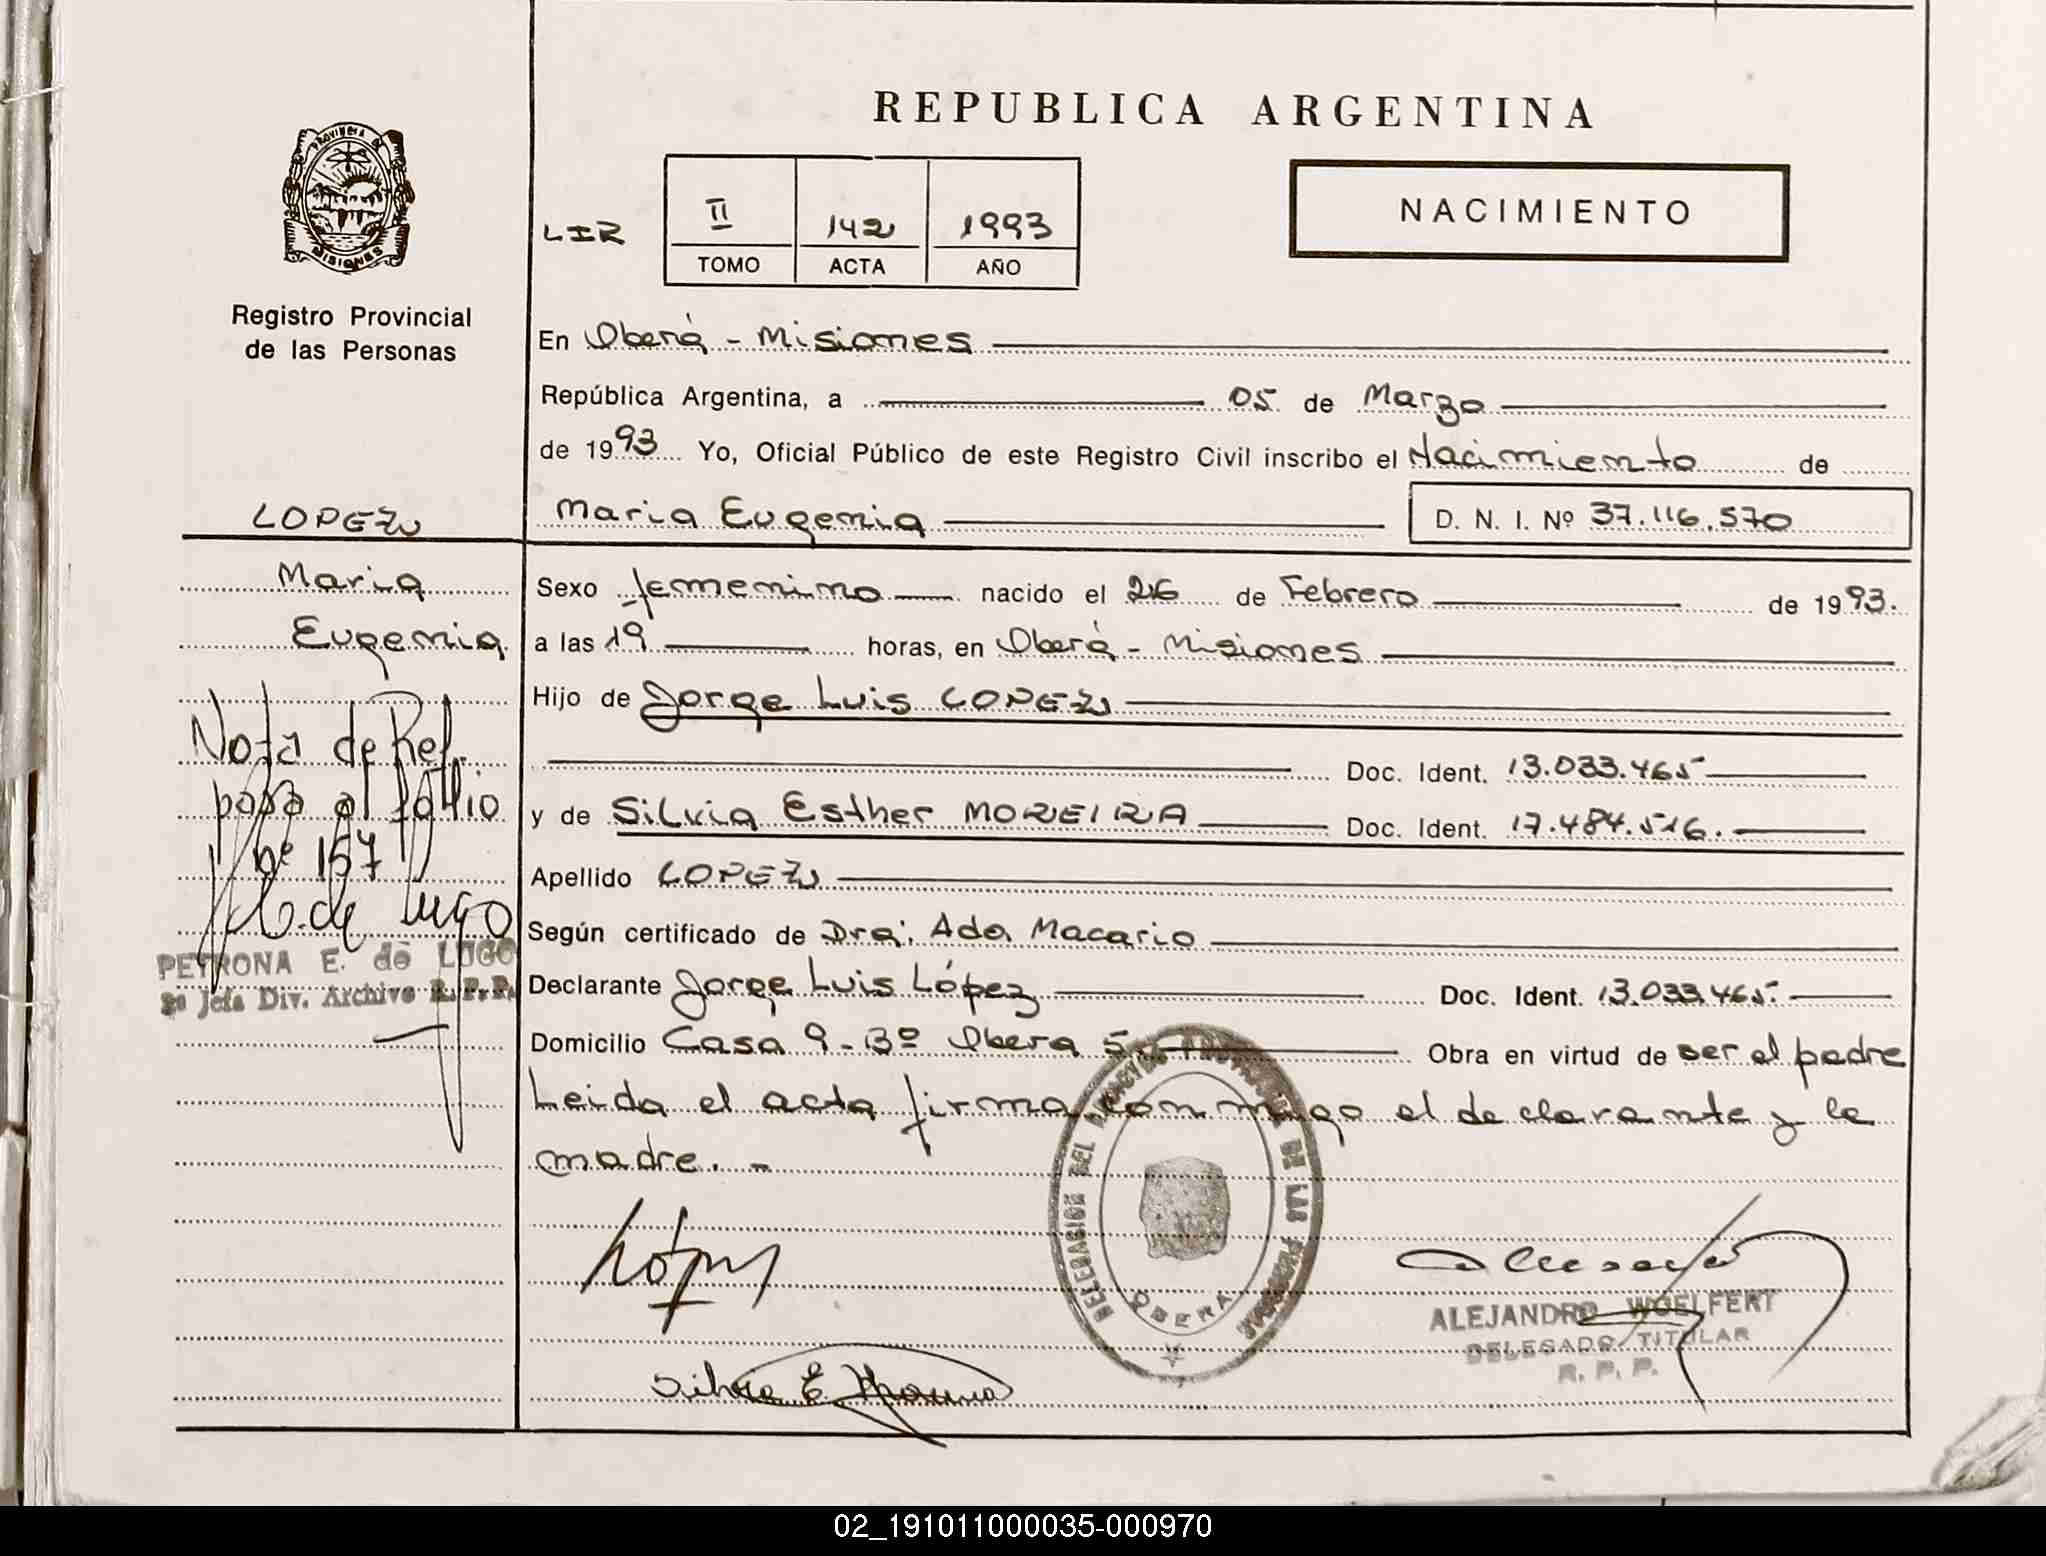 REPUBLICA ARGENTINA
PROVINCIA DE
MISIONES
Registro Provincial
de las Personas
LIR
II 142 1993
TOMO ACTA AÑO
NACIMIENTO
En Oberá - Misiones
República Argentina, a 05 de Marzo
de 1993 Yo, Oficial Público de este Registro Civil inscribo el Nacimiento de
Maria Eugenia D. N. I. Nº 37.116.570
LOPEZ
Maria
Eugenia
Nota de Ref.
pasa al follio
Nº 157
E. de Lugo
PETRONA E. de LUGO
Jefa Div. Archivo R.P.P.
Sexo femenino nacido el 26 de Febrero de 1993.
a las 19 horas, en Oberá - Misiones
Hijo de Jorge Luis LOPEZ
Doc. Ident. 13.033.465
y de Silvia Esther MOREIRA Doc. Ident. 17.484.516.
Apellido LOPEZ
Según certificado de Dra: Ada Macario
Declarante Jorge Luis López Doc. Ident. 13.033.465.
Domicilio Casa 9 - Bº Obera 5 Obra en virtud de ser el padre
Leida el acta firma conmigo el declarante y la
madre. -
DELEGACION DEL REGISTRO PROVINCIAL DE LAS PERSONAS
OBERA
López
Silvia E
ALEJANDRO WOELFERT
DELEGADO TITULAR
R. P. P.
02_191011000035-000970